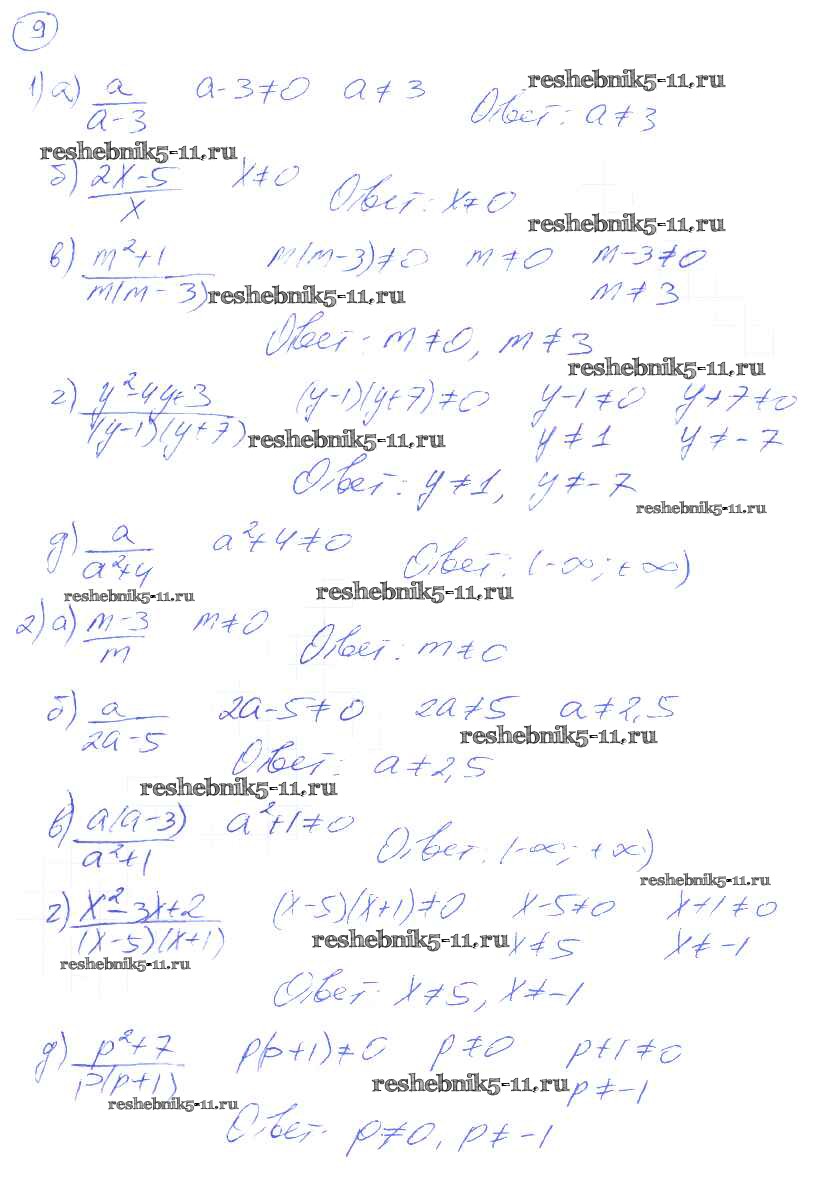 9
1) а) a/(a-3) a-3≠0 a≠3 Ответ: a≠3
reshebnik5-11.ru
reshebnik5-11.ru
б) (2x-5)/x x≠0 Ответ: x≠0
reshebnik5-11.ru
в) (m²+1)/(m(m-3)) m(m-3)≠0 m≠0 m-3≠0
reshebnik5-11.ru m≠3
Ответ: m≠0, m≠3
reshebnik5-11.ru
г) (y²-4y+3)/((y-1)(y+7)) (y-1)(y+7)≠0 y-1≠0 y+7≠0
reshebnik5-11.ru y≠1 y≠-7
Ответ: y≠1, y≠-7
reshebnik5-11.ru
д) a/(a²+4) a²+4≠0 Ответ: (-∞; +∞)
reshebnik5-11.ru reshebnik5-11.ru
2) а) (m-3)/m m≠0 Ответ: m≠0
б) a/(2a-5) 2a-5≠0 2a≠5 a≠2,5
reshebnik5-11.ru
Ответ: a≠2,5
reshebnik5-11.ru
в) (a(a-3))/(a²+1) a²+1≠0 Ответ: (-∞; +∞)
reshebnik5-11.ru
г) (x²-3x+2)/((x-5)(x+1)) (x-5)(x+1)≠0 x-5≠0 x+1≠0
reshebnik5-11.ru x≠5 x≠-1
reshebnik5-11.ru
Ответ x≠5, x≠-1
д) (p²+7)/(p(p+1)) p(p+1)≠0 p≠0 p+1≠0
reshebnik5-11.ru p≠-1
reshebnik5-11.ru
Ответ p≠0, p≠-1